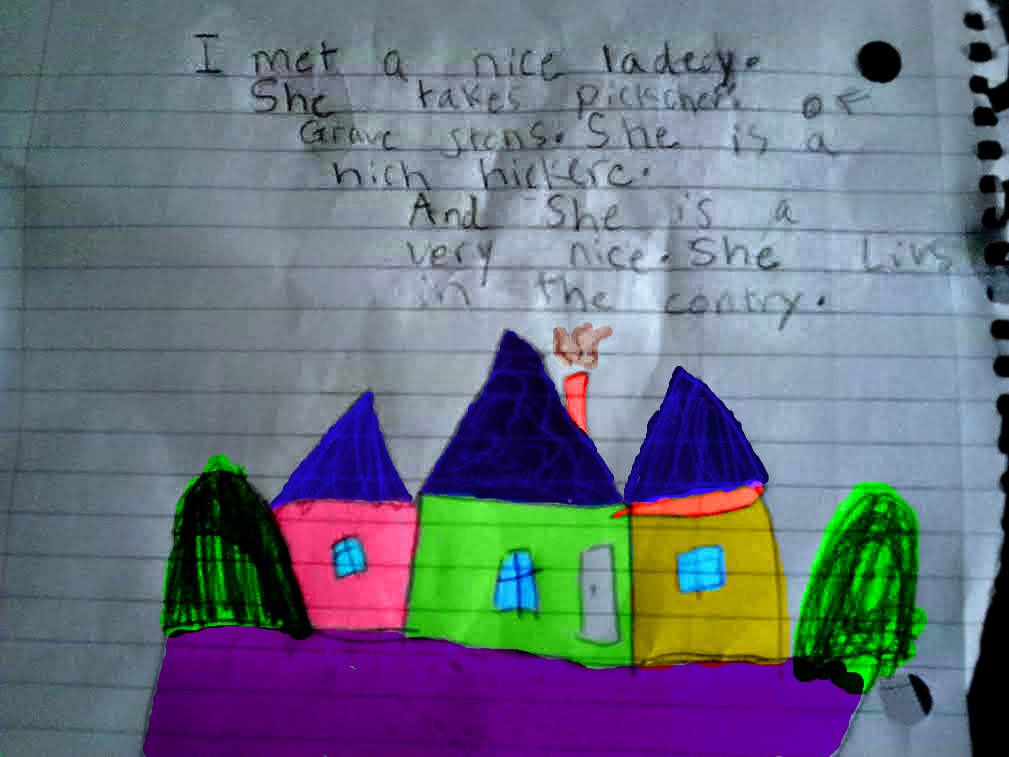 I met a nice ladey.
She takes pickcher. of
Grave stons. She is a
hich hickere.
And She is a
very nice. She Livs
in the contry.